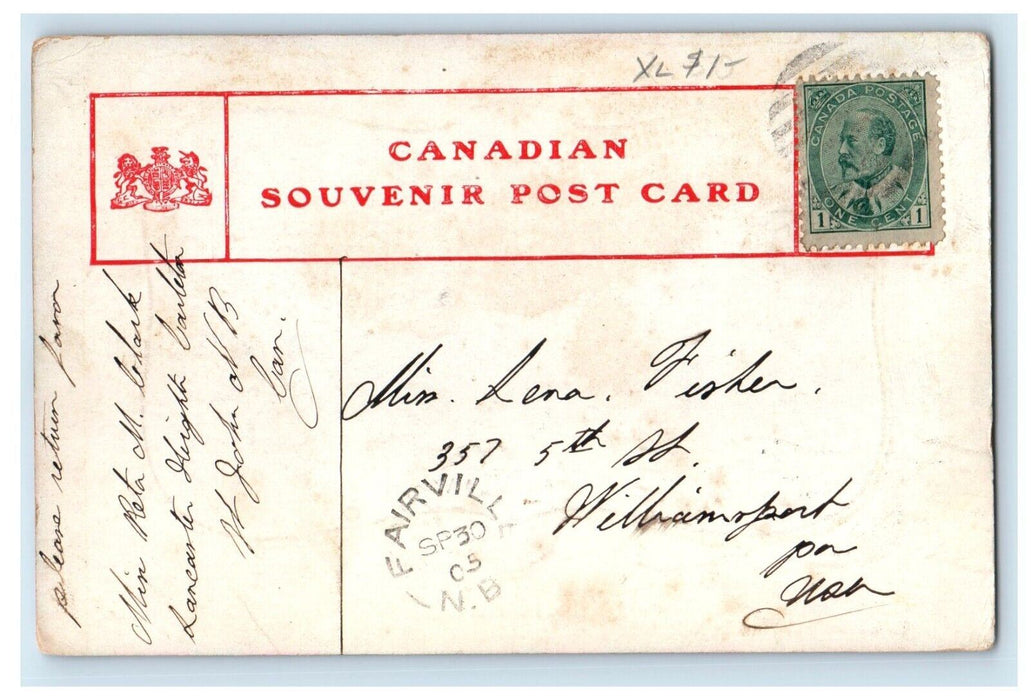 XL $15
CANADIAN
SOUVENIR POST CARD
CANADA POSTAGE
ONE CENT
1 1
please return favor
Miss Reta M. Clark
Lancaster Height Carleton
St John N B
Can.
Miss. Lena. Fisher.
357 5th St.
Williamsport
pa
USA
FAIRVILLE
SP 30
05
N.B